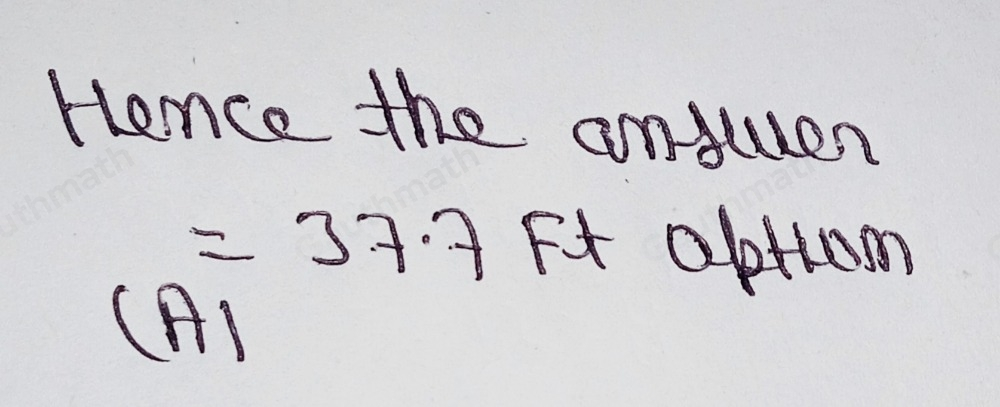 Hence the answer
= 37.7 Ft option
(A)